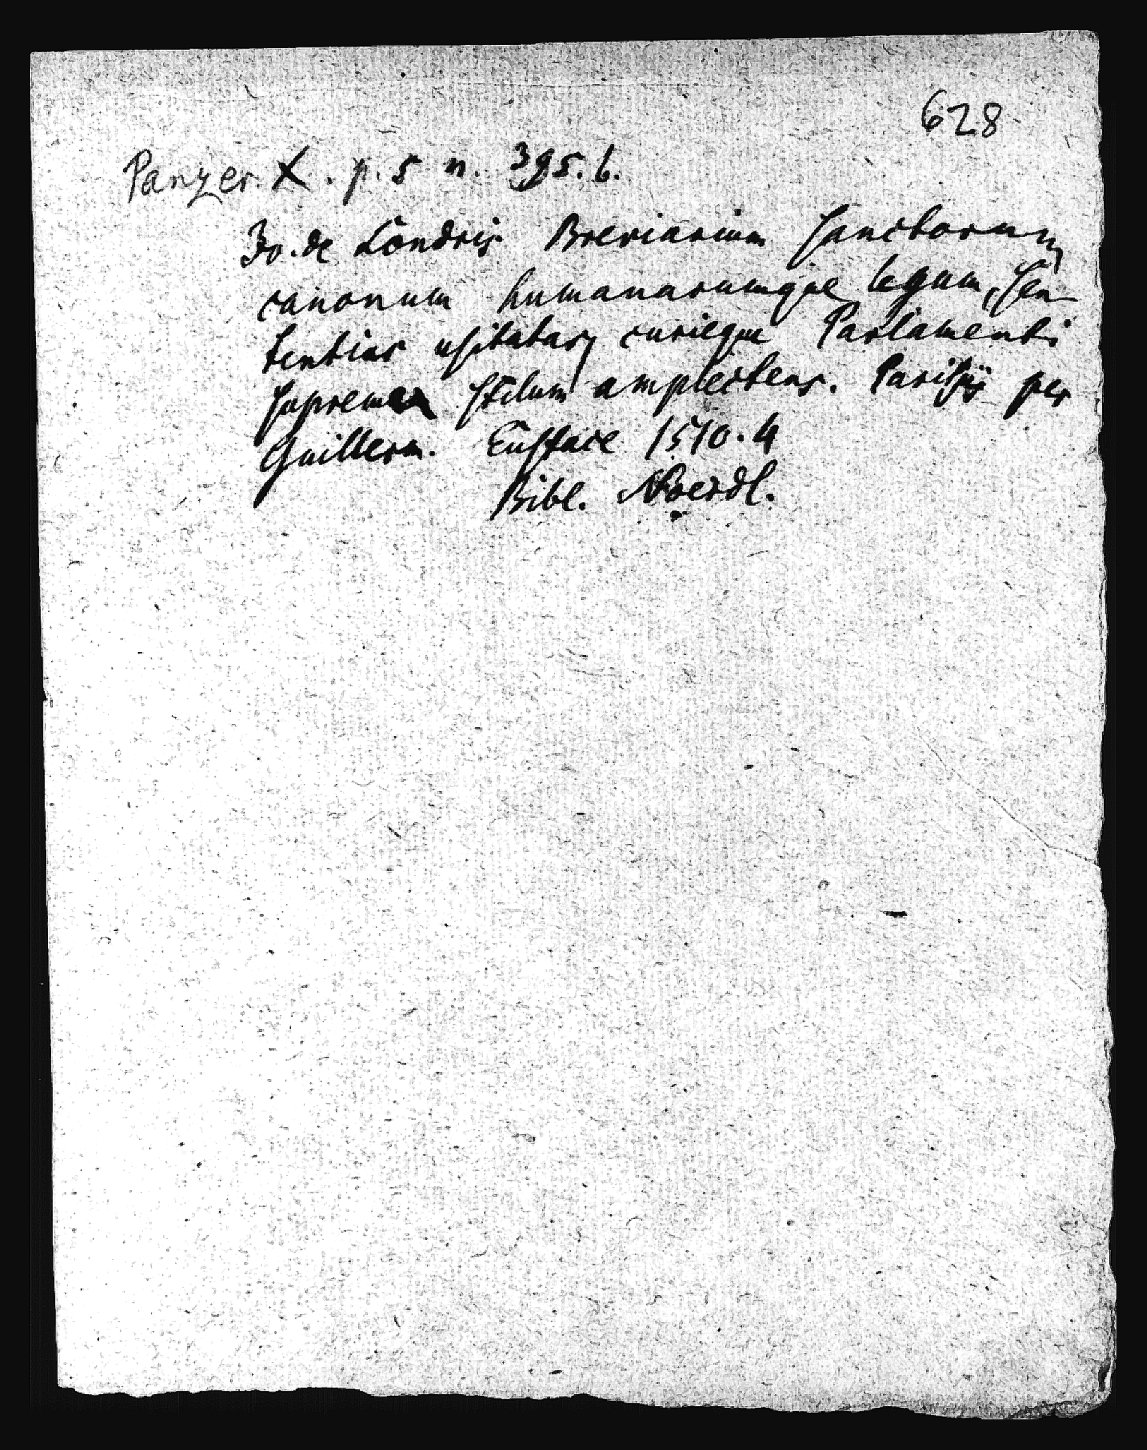 628
Panzer. X. p. 5 n. 395. b.
Jo. de Londris Breviarium sanctorum
canonum humanarumque legum, sen-
tentias usitatas, curieque Parlamenti
supreme stilum amplectens. Parisijs per
Guillerm. Eustace 1510. 4
Bibl.